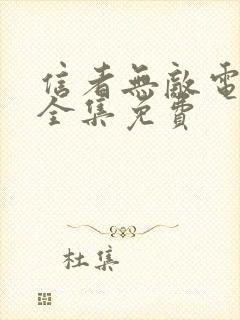 信者無敵電
全集免費
杜集